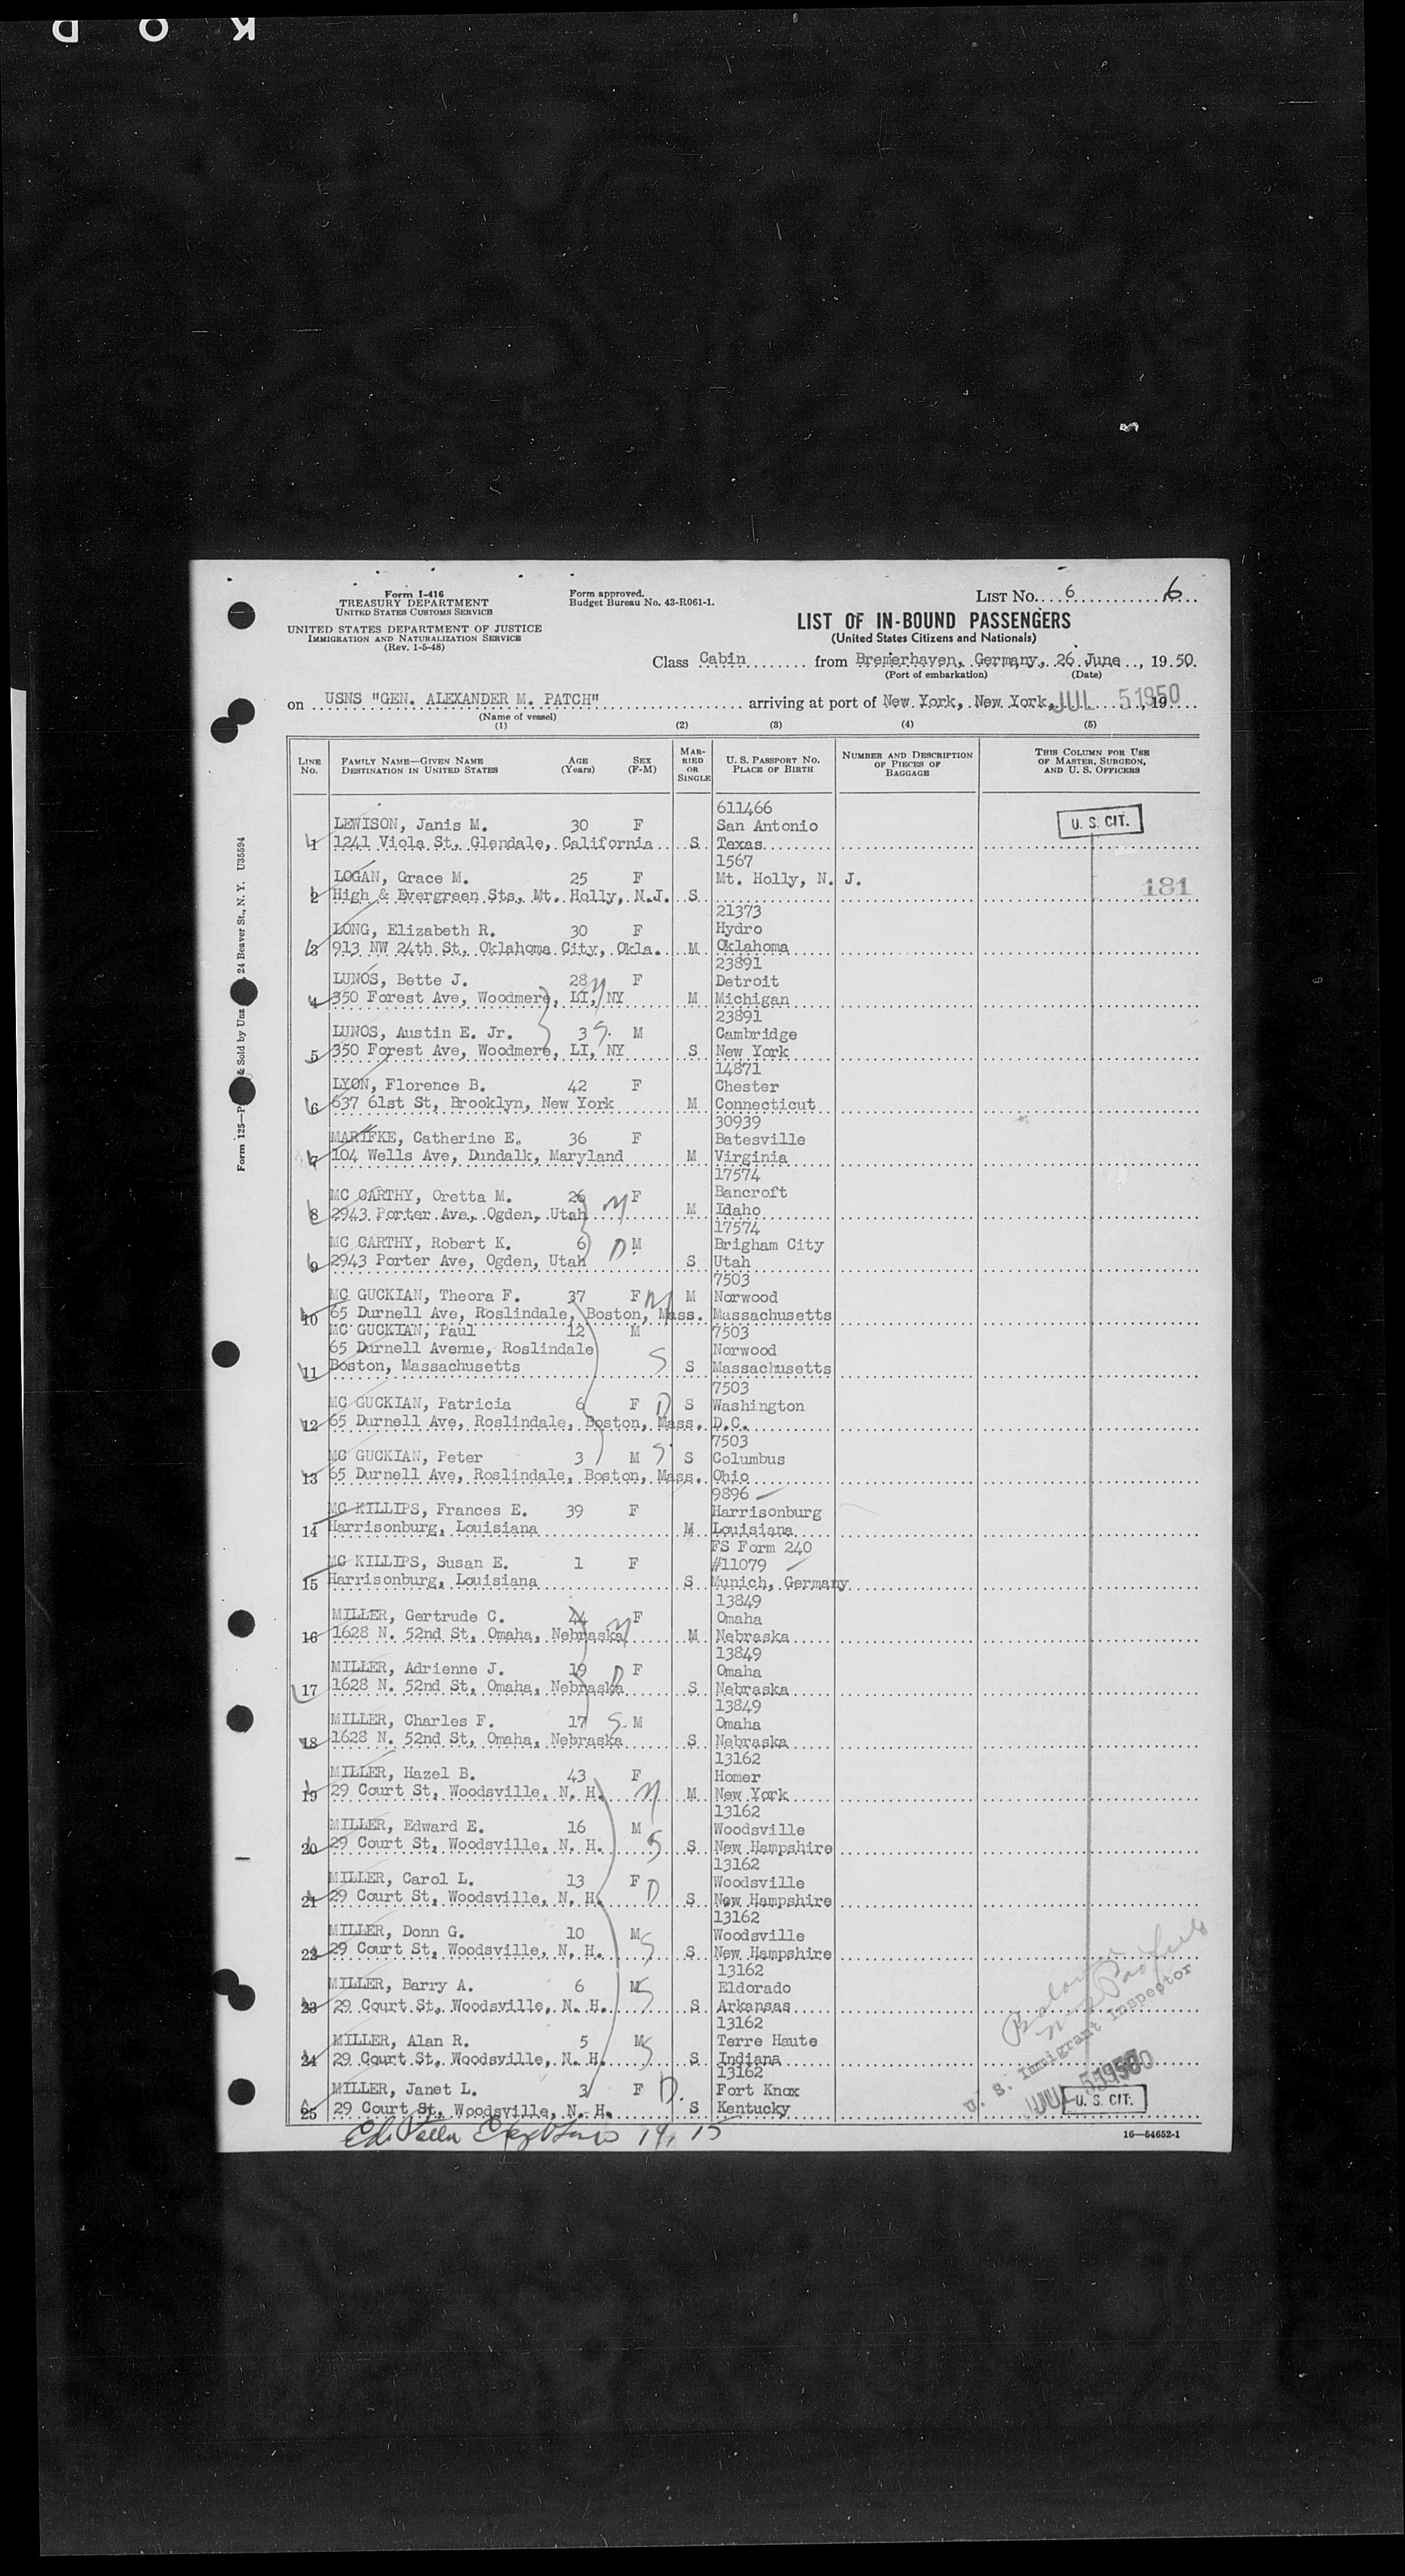 K O D
Form I-416
TREASURY DEPARTMENT
UNITED STATES CUSTOMS SERVICE
UNITED STATES DEPARTMENT OF JUSTICE
IMMIGRATION AND NATURALIZATION SERVICE
(Rev. 1-5-48)
Form approved.
Budget Bureau No. 43-R061-1.
LIST No. 6 6
LIST OF IN-BOUND PASSENGERS
(United States Citizens and Nationals)
Class Cabin from Bremerhaven, Germany, 26 June, 1950.
(Port of embarkation) (Date)
on USNS "GEN. ALEXANDER M. PATCH" arriving at port of New York, New York, JUL 5 1950, 19
(Name of vessel)
(1) (2) (3) (4) (5)
LINE No. FAMILY NAME—GIVEN NAME DESTINATION IN UNITED STATES AGE (Years) SEX (F-M) MARRIED OR SINGLE U. S. PASSPORT NO. PLACE OF BIRTH NUMBER AND DESCRIPTION OF PIECES OF BAGGAGE THIS COLUMN FOR USE OF MASTER, SURGEON, AND U. S. OFFICERS
611466
LEWISON, Janis M. 30 F San Antonio U. S. CIT.
1 1241 Viola St, Glendale, California S Texas
1567
LOGAN, Grace M. 25 F Mt. Holly, N. J.
2 High & Evergreen Sts, Mt. Holly, N.J. S 181
21373
LONG, Elizabeth R. 30 F Hydro
3 913 NW 24th St, Oklahoma City, Okla. M Oklahoma
23891
LUNOS, Bette J. 28 M F Detroit
4 350 Forest Ave, Woodmere, LI, NY M Michigan
23891
LUNOS, Austin E. Jr. 3 S. M Cambridge
5 350 Forest Ave, Woodmere, LI, NY S New York
14871
LYON, Florence B. 42 F Chester
6 637 61st St, Brooklyn, New York M Connecticut
30939
MARIFKE, Catherine E. 36 F Batesville
7 104 Wells Ave, Dundalk, Maryland M Virginia
17574
MC CARTHY, Oretta M. 26 M F Bancroft
8 2943 Porter Ave, Ogden, Utah M Idaho
17574
MC CARTHY, Robert K. 6 D M Brigham City
9 2943 Porter Ave, Ogden, Utah S Utah
7503
MC GUCKIAN, Theora F. 37 F M M Norwood
10 65 Durnell Ave, Roslindale, Boston, Mass. Massachusetts
MC GUCKIAN, Paul 12 M 7503
65 Durnell Avenue, Roslindale Norwood
11 Boston, Massachusetts S S Massachusetts
7503
MC GUCKIAN, Patricia 6 F D S Washington
12 65 Durnell Ave, Roslindale, Boston, Mass. D.C.
7503
MC GUCKIAN, Peter 3 M S S Columbus
13 65 Durnell Ave, Roslindale, Boston, Mass. Ohio
9896
MC KILLIPS, Frances E. 39 F Harrisonburg
14 Harrisonburg, Louisiana M Louisiana
FS Form 240
MC KILLIPS, Susan E. 1 F #11079
15 Harrisonburg, Louisiana S Munich, Germany
13849
MILLER, Gertrude C. 44 F Omaha
16 1628 N. 52nd St, Omaha, Nebraska M M Nebraska
13849
MILLER, Adrienne J. 19 D F Omaha
17 1628 N. 52nd St, Omaha, Nebraska S Nebraska
13849
MILLER, Charles F. 17 S. M Omaha
18 1628 N. 52nd St, Omaha, Nebraska S Nebraska
13162
MILLER, Hazel B. 43 F Homer
19 29 Court St, Woodsville, N. H. M M New York
13162
MILLER, Edward E. 16 M Woodsville
20 29 Court St, Woodsville, N. H. S S New Hampshire
13162
MILLER, Carol L. 13 F D Woodsville
21 29 Court St, Woodsville, N. H. S New Hampshire
13162
MILLER, Donn G. 10 M S Woodsville
22 29 Court St, Woodsville, N. H. S New Hampshire
13162
MILLER, Barry A. 6 M S Eldorado
23 29 Court St, Woodsville, N. H. S Arkansas
13162
MILLER, Alan R. 5 M S Terre Haute
24 29 Court St, Woodsville, N. H. S Indiana
13162
MILLER, Janet L. 3 F D. Fort Knox
25 29 Court St, Woodsville, N. H. S Kentucky
U. S. Immigrant Inspector
JUL 5 1950
U. S. CIT.
14, 15
16—54652-1
Form 125—P & Sold by Unz 24 Beaver St., N. Y. U35594